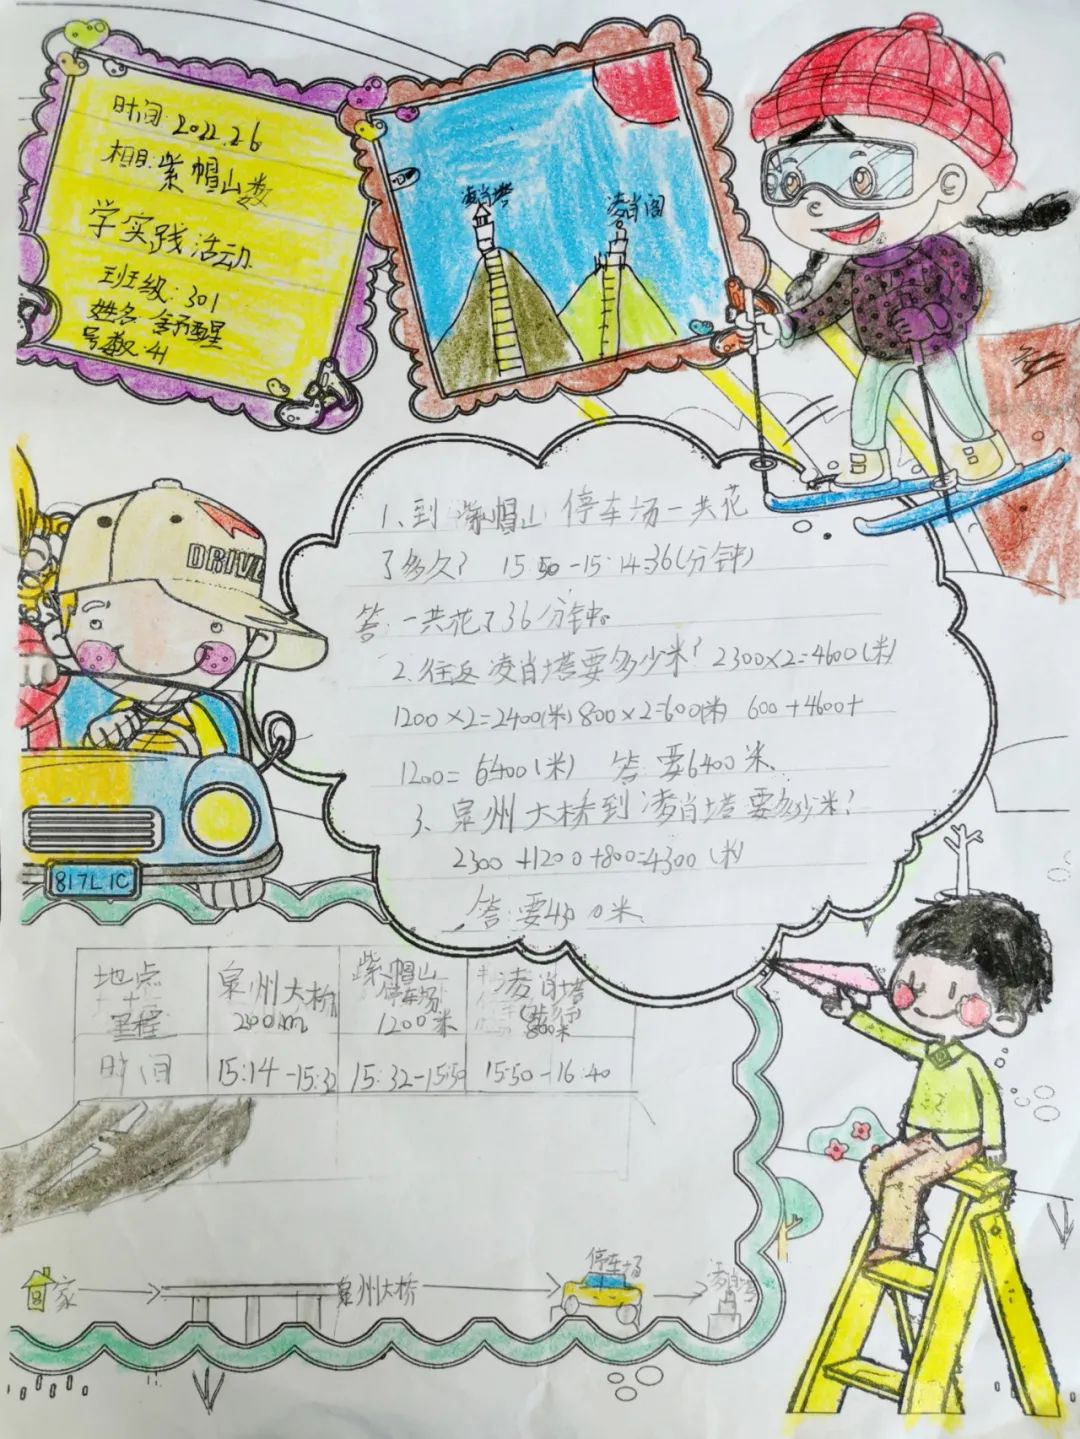 时间:2022.2.6
相目:紫帽山数
学实践活动
班级:301
号数:41
凌肖塔
凌肖阁
DRIVE
817L1C
1、到紫帽山停车场一共花
了多久? 15:50-15:14=36(分钟)
答:一共花了36分钟。
2.往返凌肖塔要多少米? 2300×2=4600(米)
1200×2=2400(米) 800×2=600(米) 600+4600+
1200=6400(米) 答:要6400米、
3、泉州大桥到凌肖塔要多少米?
2300+1200+800=4300(米)
答:要4300米
地点 泉州大桥 紫帽山停车场 凌肖塔
里程 1200米 800米
时间 15:14-15:32 15:32-15:50 15:50-16:40
家 泉州大桥 停车场